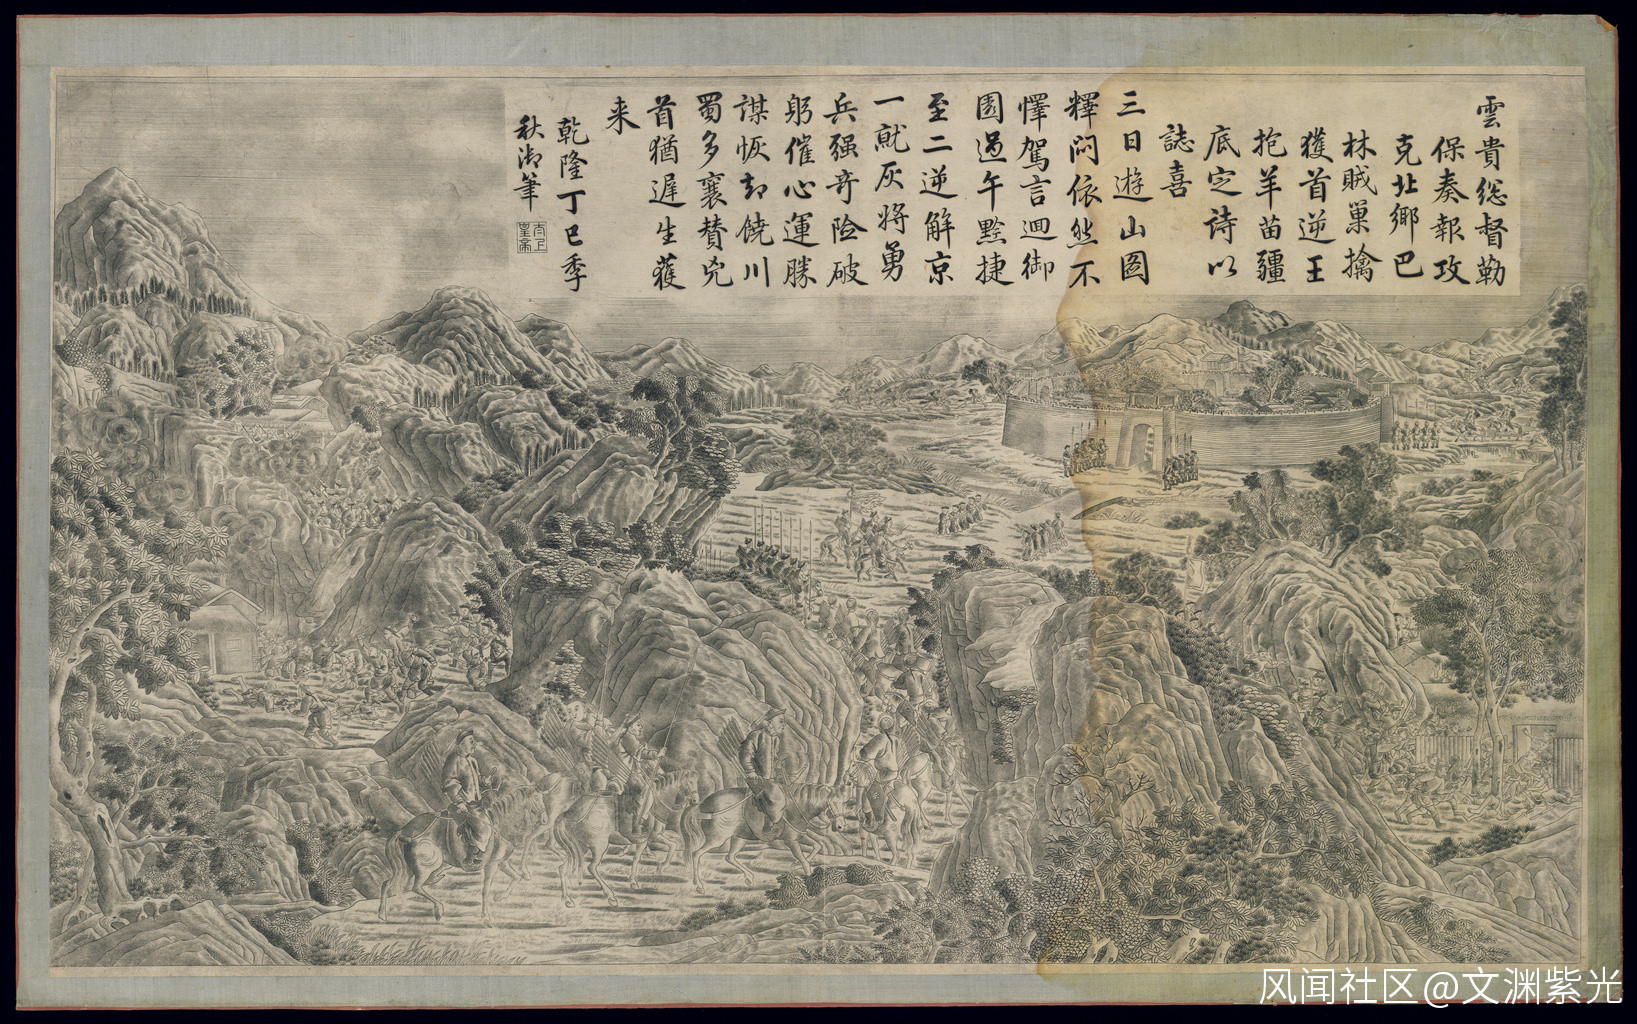 雲貴総督勒
保奏報攻
克北鄉巴
林賊巢擒
獲首逆王
抱羊苗疆
底定詩以
誌喜
三日遊山圖
釋悶依然不
懌駕言迴御
園過午黙捷
至二逆解京
一就灰將勇
兵强竒险破
躬催心運勝
謀恢却饒川
蜀多襄賛兇
首猶遅生獲
来
乾隆丁巳季
秋御筆
太上
皇帝
风闻社区@文渊紫光